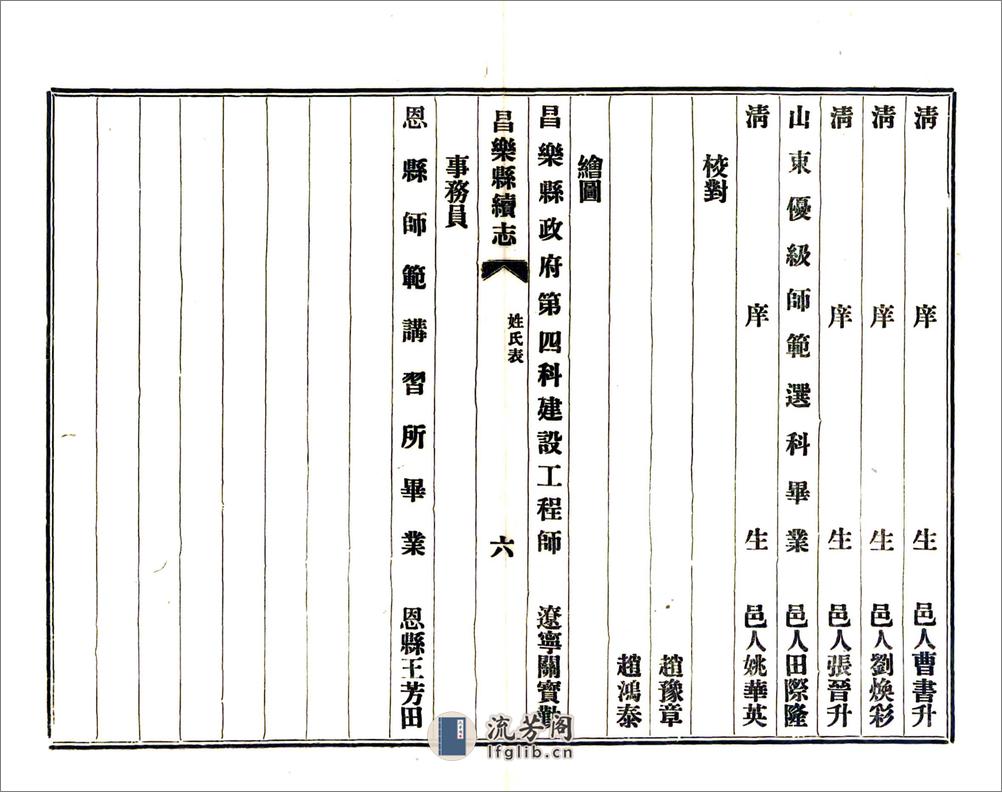 清庠生 邑人曹書升
清庠生 邑人劉煥彩
清庠生 邑人張晉升
山東優級師範選科畢業 邑人田際隆
清庠生 邑人姚華英
校對
趙豫章
趙鴻泰
繪圖
昌樂縣政府第四科建設工程師 遼寧關寶勳
昌樂縣續志
姓氏表
六
事務員
恩縣師範講習所畢業 恩縣王芳田
流芳阁
lfglib.cn